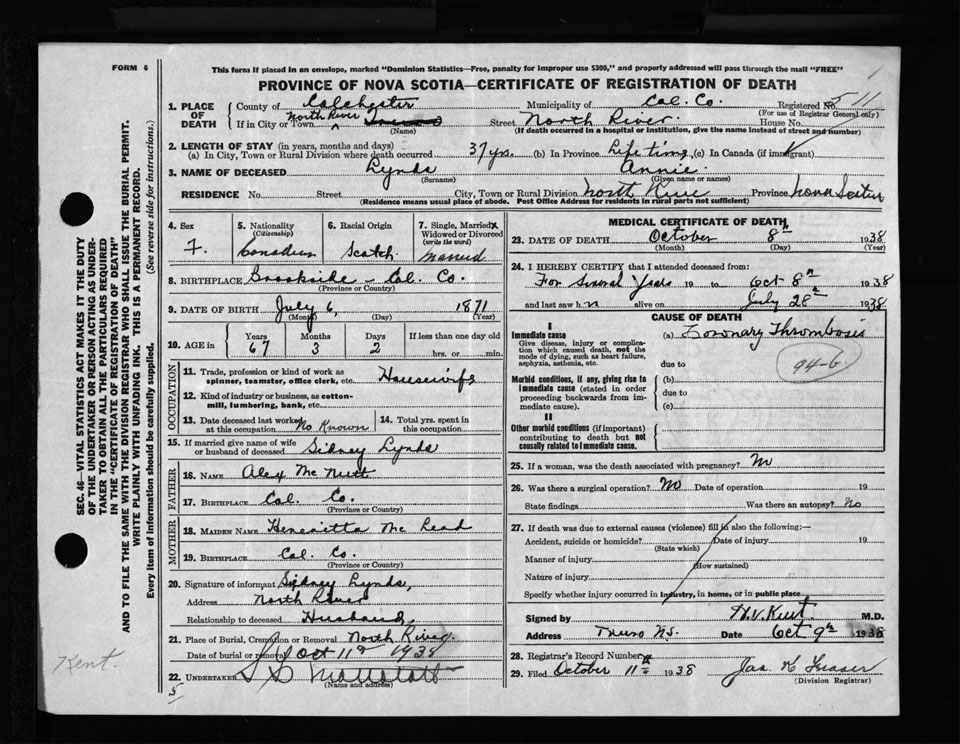 FORM 6
This form if placed in an envelope, marked "Dominion Statistics—Free, penalty for improper use $300," and properly addressed will pass through the mail "FREE"
PROVINCE OF NOVA SCOTIA—CERTIFICATE OF REGISTRATION OF DEATH
1. PLACE OF DEATH County of Colchester Municipality of Cal. Co. Registered No. 511
(For use of Registrar General only)
If in City or Town North River Street North River. House No.
(Name) (If death occurred in a hospital or institution, give the name instead of street and number)
2. LENGTH OF STAY (in years, months and days)
(a) In City, Town or Rural Division where death occurred 37 yrs. (b) In Province Life time (c) In Canada (if immigrant)
3. NAME OF DECEASED Lynds Annie
(Surname) (Given name or names)
RESIDENCE No. Street City, Town or Rural Division North River Province Nova Scotia
(Residence means usual place of abode. Post Office Address for residents in rural parts not sufficient)
4. Sex F.
5. Nationality (Citizenship) Canadian
6. Racial Origin Scotch
7. Single, Married, Widowed or Divorced (write the word) Married
8. BIRTHPLACE Brookside - Cal. Co.
(Province or Country)
9. DATE OF BIRTH July 6, 1871
(Month) (Day) (Year)
10. AGE in Years 67 Months 3 Days 2 If less than one day old
hrs. or min.
OCCUPATION
11. Trade, profession or kind of work as spinner, teamster, office clerk, etc. Housewife
12. Kind of industry or business, as cotton-mill, lumbering, bank, etc.
13. Date deceased last worked at this occupation No Known
14. Total yrs. spent in this occupation
15. If married give name of wife or husband of deceased Sidney Lynds
FATHER
16. NAME Alex Mc Nutt
17. BIRTHPLACE Cal. Co.
(Province or Country)
MOTHER
18. MAIDEN NAME Henrietta Mc Lead
19. BIRTHPLACE Cal. Co.
(Province or Country)
20. Signature of informant Sidney Lynds,
Address North River
Relationship to deceased Husband
21. Place of Burial, Cremation or Removal North River.
Date of burial or removal Oct 11th 1938
22. UNDERTAKER
(Name and address)
MEDICAL CERTIFICATE OF DEATH
23. DATE OF DEATH October 8th 1938
(Month) (Day) (Year)
24. I HEREBY CERTIFY that I attended deceased from:
For Several Years 19 to Oct 8th 1938
and last saw h er alive on July 28th 1938
CAUSE OF DEATH
I
Immediate cause (a) Coronary Thrombosis
Give disease, injury or complication which caused death, not the mode of dying, such as heart failure, asphyxia, asthenia, etc.
due to 94-6
Morbid conditions, if any, giving rise to immediate cause (stated in order proceeding backwards from immediate cause).
(b)
due to
(c)
II
Other morbid conditions (if important) contributing to death but not causally related to immediate cause.
25. If a woman, was the death associated with pregnancy? No
26. Was there a surgical operation? No Date of operation 19
State findings Was there an autopsy? No
27. If death was due to external causes (violence) fill in also the following:—
Accident, suicide or homicide? Date of injury 19
(State which)
Manner of injury
(How sustained)
Nature of injury
Specify whether injury occurred in industry, in home, or in public place
Signed by H.V. Kent. M.D.
Address Truro N.S. Date Oct 9th 1938
28. Registrar's Record Number
29. Filed October 11th 1938 Jas. H Fraser
(Division Registrar)
SEC. 46—VITAL STATISTICS ACT MAKES IT THE DUTY
OF THE UNDERTAKER OR PERSON ACTING AS UNDER-
TAKER TO OBTAIN ALL THE PARTICULARS REQUIRED
IN THE "CERTIFICATE OF REGISTRATION OF DEATH"
AND TO FILE THE SAME WITH THE DIVISION REGISTRAR WHO SHALL ISSUE THE BURIAL PERMIT.
WRITE PLAINLY WITH UNFADING INK. THIS IS A PERMANENT RECORD.
Every item of information should be carefully supplied. (See reverse side for instructions.)
Kent.
5